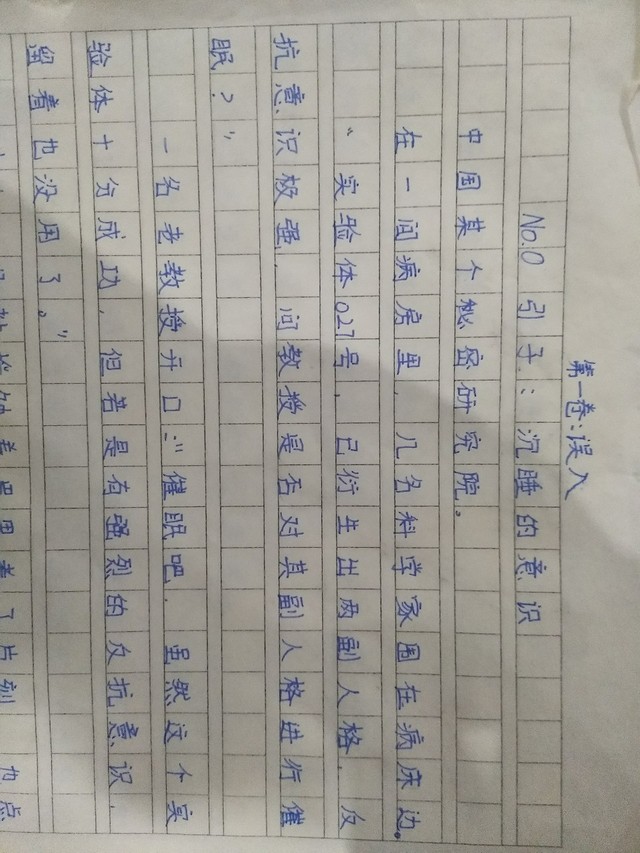 第一卷：误入
No.0 引子：沉睡的意识
中国某个秘密研究院。
在一间病房里，几名科学家围在病床边。
“实验体027号，已衍生出两副人格，反
抗意识极强，问教授是否对其副人格进行催
眠？”
一名老教授开口：“催眠吧，虽然这个实
验体十分成功，但若是有强烈的反抗意识，
留着也没用了。”